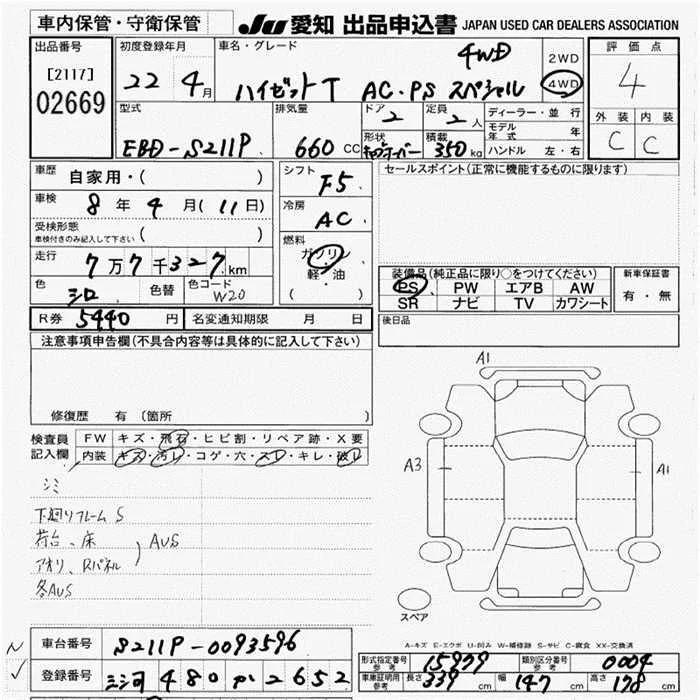 車内保管・守衛保管 JU 愛知 出品申込書 JAPAN USED CAR DEALERS ASSOCIATION
出品番号 初度登録年月 車名・グレード 4WD 2WD 評価点
[2117] 22 4月 ハイゼットT AC・PS スペシャル 4WD 4
02669 型式 排気量 ドア 2 定員 2人 ディーラー・並行 外装 内装
モデル年式 年 C C
EBD-S211P 660cc 形状 積載 350kg ハンドル 左・右
車歴 自家用・( ) シフト F5 セールスポイント(正常に機能するものに限ります)
車検 8年 4月(11日) 冷房 AC
受検形態 ( )
車検付きのみ記入して下さい
燃料 ガソリン
走行 7万7千327km 軽・油 装備品(純正品に限り○をつけてください) 新車保証書
色 シロ 色替 色コード W20 ( ) PS PW エアB AW 有・無
SR ナビ TV カワシート
R券 5440円 名変通知期限 月 日 後日品
注意事項申告欄(不具合内容等は具体的に記入して下さい)
A1
修復歴 有(箇所 )
検査員 FW キズ・飛石・ヒビ割・リペア跡・X要
記入欄 内装 キズ・汚レ・コゲ・穴・スレ・キレ・破レ
A3 A1
シミ
下廻りフレームS
荷台、床
アオリ、Rパネル ) AUS
各AUS
スペア
A-キズ E-エクボ U-凹み W-補修跡 S-サビ C-腐食 XX-交換済
車台番号 S211P-0093596
型式指定番号 参考 15979 類別区分番号 参考 0004
登録番号 480 2652
車庫証明用 参考 長さ 339cm 幅 147cm 高さ 178cm